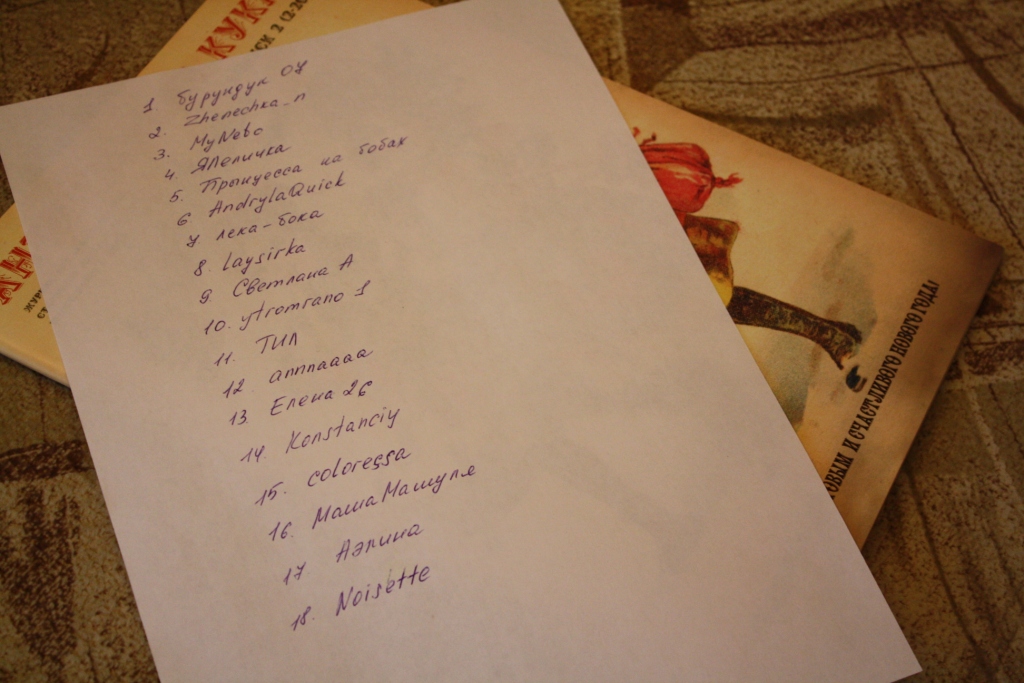 КУК
СК 2 (2-20
1. бурундук ОЧ
2. Zhenechka_n
3. MyNebo
4. ЯЛепичка
5. Прынцесса на бобах
6. AndrylaQuick
7. лека-бока
8. laysirka
9. Светлана А
10. ytromrano 1
11. ТИЛ
12. аппп­аааа
13. Елена 26
14. Konstanciy
15. coloressa
16. МашаМашуля
17. Аэлина
18. Noisette
ТОВЫМ И СЧАСТЛИВОГО НОВОГО ГОДА!